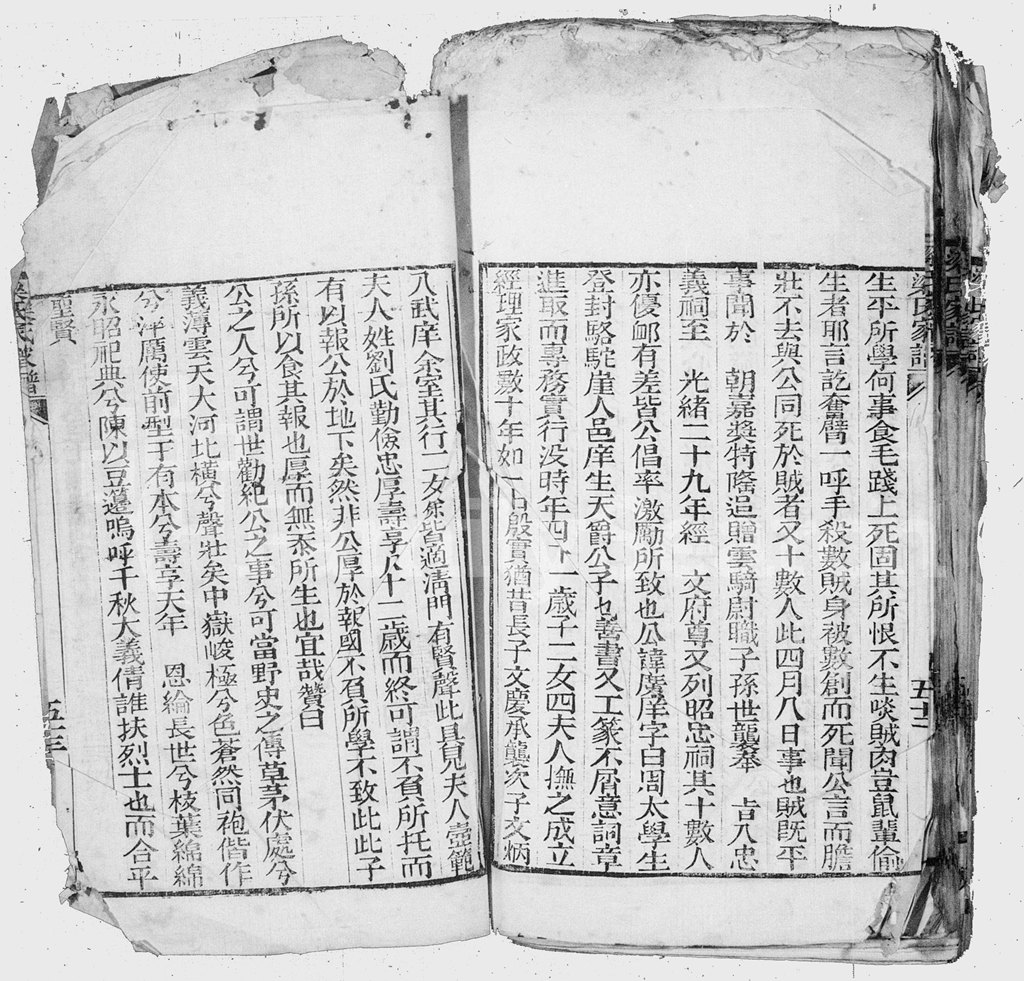 梁氏家譜
五十二
生平所學何事食毛踐土死固其所恨不生啖賊肉豈鼠輩偷
生者耶言訖奮臂一呼手殺數賊身被數創而死聞公言而膽
壯不去與公同死於賊者又十數人此四月八日事也賊既平
事聞於 朝嘉獎特隆追贈雲騎尉職子孫世襲奉 旨入忠
義祠至 光緒二十九年經 文府尊又列昭忠祠其十數人
亦優卹有差皆公倡率激勵所致也公諱廣庠字白周太學生
登封駱駝崖人邑庠生天爵公子也善書又工篆不屑意詞章
進取而專務實行没時年四十一歲子二女四夫人撫之成立
經理家政數十年如一日殷實猶昔長子文慶承襲次子文炳
入武庠余室其行二女餘皆適清門有賢聲此具見夫人壼範
夫人姓劉氏勤儉忠厚壽享八十二歲而終可謂不負所托而
有以報公於地下矣然非公厚於報國不負所學不致此此子
孫所以食其報也厚而無忝所生也宜哉贊曰
公之人兮可謂世勸紀公之事兮可當野史之傳草茅伏處兮
義薄雲天大河北横兮聲壯矣中嶽峻極兮色蒼然同袍偕作
兮 厲使前型于有本兮壽享天年 恩綸長世兮枝葉綿綿
永昭祀典兮陳以豆籩嗚呼千秋大義倩誰扶烈士也而合乎
聖賢
梁氏家譜
五十三